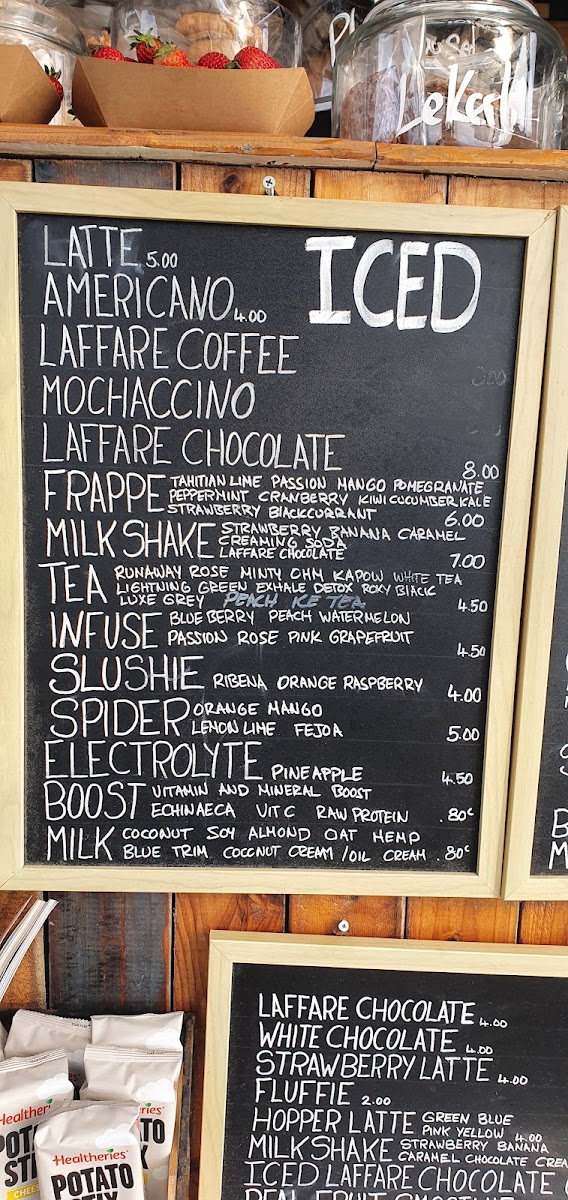 LeKerst
ICED
LATTE 5.00
AMERICANO 4.00
LAFFARE COFFEE
MOCHACCINO
LAFFARE CHOCOLATE 8.00
FRAPPE TAHITIAN LIME PASSION MANGO POMEGRANATE
PEPPERMINT CRANBERRY KIWI CUCUMBER KALE
STRAWBERRY BLACKCURRANT 6.00
MILKSHAKE STRAWBERRY BANANA CARAMEL
CREAMING SODA
LAFFARE CHOCOLATE 7.00
TEA RUNAWAY ROSE MINTY OHM KAPOW WHITE TEA
LIGHTNING GREEN EXHALE DETOX ROXY BLACK
LUXE GREY PEACH ICE TEA 4.50
INFUSE BLUEBERRY PEACH WATERMELON
PASSION ROSE PINK GRAPEFRUIT 4.50
SLUSHIE RIBENA ORANGE RASPBERRY 4.00
SPIDER ORANGE MANGO
LEMON LIME FEJOA 5.00
ELECTROLYTE PINEAPPLE 4.50
BOOST VITAMIN AND MINERAL BOOST
ECHINAECA VIT C RAW PROTEIN .80c
MILK COCONUT SOY ALMOND OAT HEMP
BLUE TRIM COCONUT CREAM /OIL CREAM .80c
LAFFARE CHOCOLATE 4.00
WHITE CHOCOLATE 4.00
STRAWBERRY LATTE 4.00
FLUFFIE 2.00
HOPPER LATTE GREEN BLUE
PINK YELLOW 4.00
MILKSHAKE STRAWBERRY BANANA
CARAMEL CHOCOLATE CREA
ICED LAFFARE CHOCOLATE
REAL FRUIT SMOOTHI
Healtheries
POTATO
STIX
Healtheries
POT
STI
CHEES